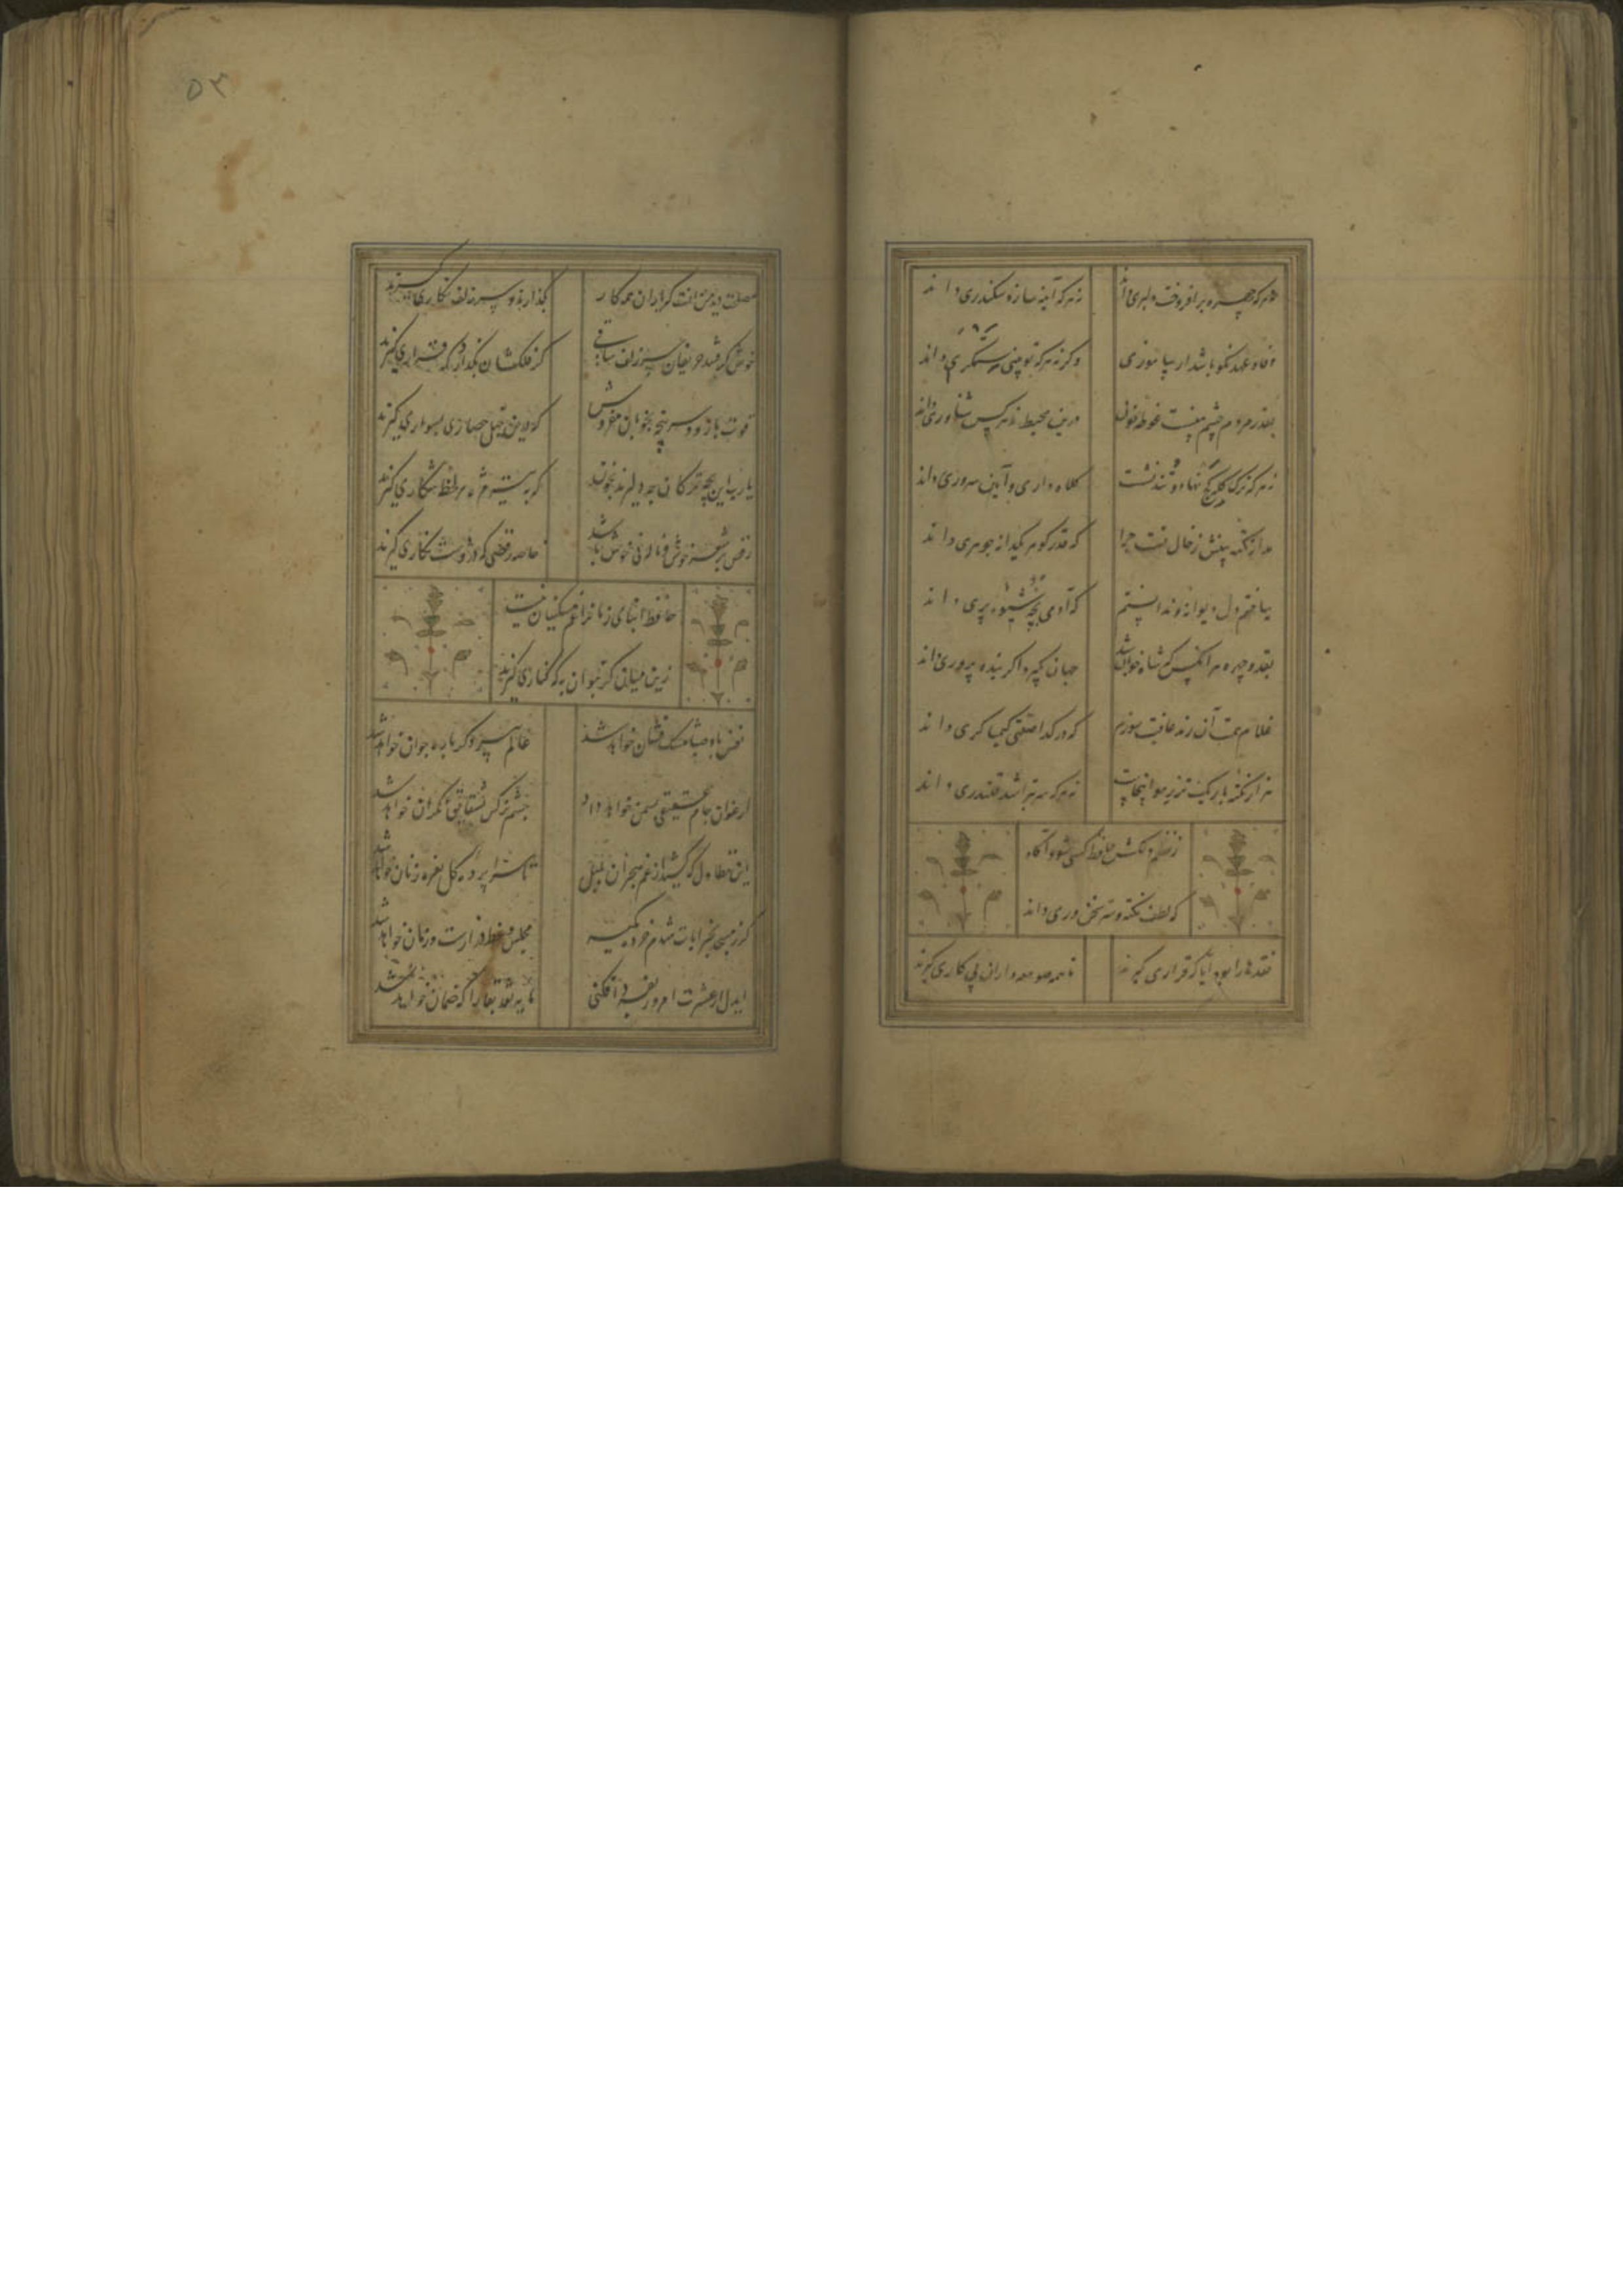 نه هر که چهره برافروخت دلبری داند
نه هر که آینه سازد سکندری داند
وفا و عهد نکو باشد ار بیاموزی
وگرنه هر که تو بینی ستمگری داند
بقدر مردم چشم منست غوطه خون
درین محیط نه هر کس شناوری داند
نه هر که ترک کله کج نهاد و تند نشست
کلاه داری و آیین سروری داند
مدار نکته بینش ز خال تست مرا
که قدر گوهر یکدانه جوهری داند
بباختم دل دیوانه و ندانستم
که آدمی بچه شیوه پری داند
بقد و چهره هر آنکس که شاه خوبان شد
جهان بگیرد اگر بنده پروری داند
غلام همت آن رند عافیت سوزم
که در گدا صفتی کیمیاگری داند
هزار نکته باریکتر ز مو اینجاست
نه هر که سر بتراشد قلندری داند
ز نظم دلکش حافظ کسی شود آگاه
که لطف نکته و سر سخن وری داند
نقدها را بود آیا که قراری گیرند
تا همه صومعه داران پی کاری گیرند
مصلحت دید من آنست که یاران همه کار
بگذارند و سر زلف نگاری گیرند
خوش گرفتند حریفان سر زلف ساقی
گر فلکشان بگذارد که قراری گیرند
قوت بازو و سرپنجه بخوبان مفروش
که درین خیل حصاری بسواری گیرند
یا رب این بچه ترکان چه دلیرند بخون
که به تیر مژه هر لحظه شکاری گیرند
رقص بر شعر خوش و ناله نی خوش باشد
خاصه رقصی که درو دست نگاری گیرند
حافظ ابنای زمانرا غم مسکینان نیست
زین میان گر بتوان به که کناری گیرند
نفس باد صبا مشک فشان خواهد شد
عالم پیر دگر باره جوان خواهد شد
ارغوان جام عقیقی بسمن خواهد داد
چشم نرگس بشقایق نگران خواهد شد
این تطاول که کشید از غم هجران بلبل
تا سراپرده گل نعره زنان خواهد شد
گر ز مسجد بخرابات شدم خرده مگیر
مجلس وعظ دراز است و زمان خواهد شد
ایدل ار عشرت امروز بفردا فکنی
مایه نقد بقا را که ضمان خواهد شد
۵۳